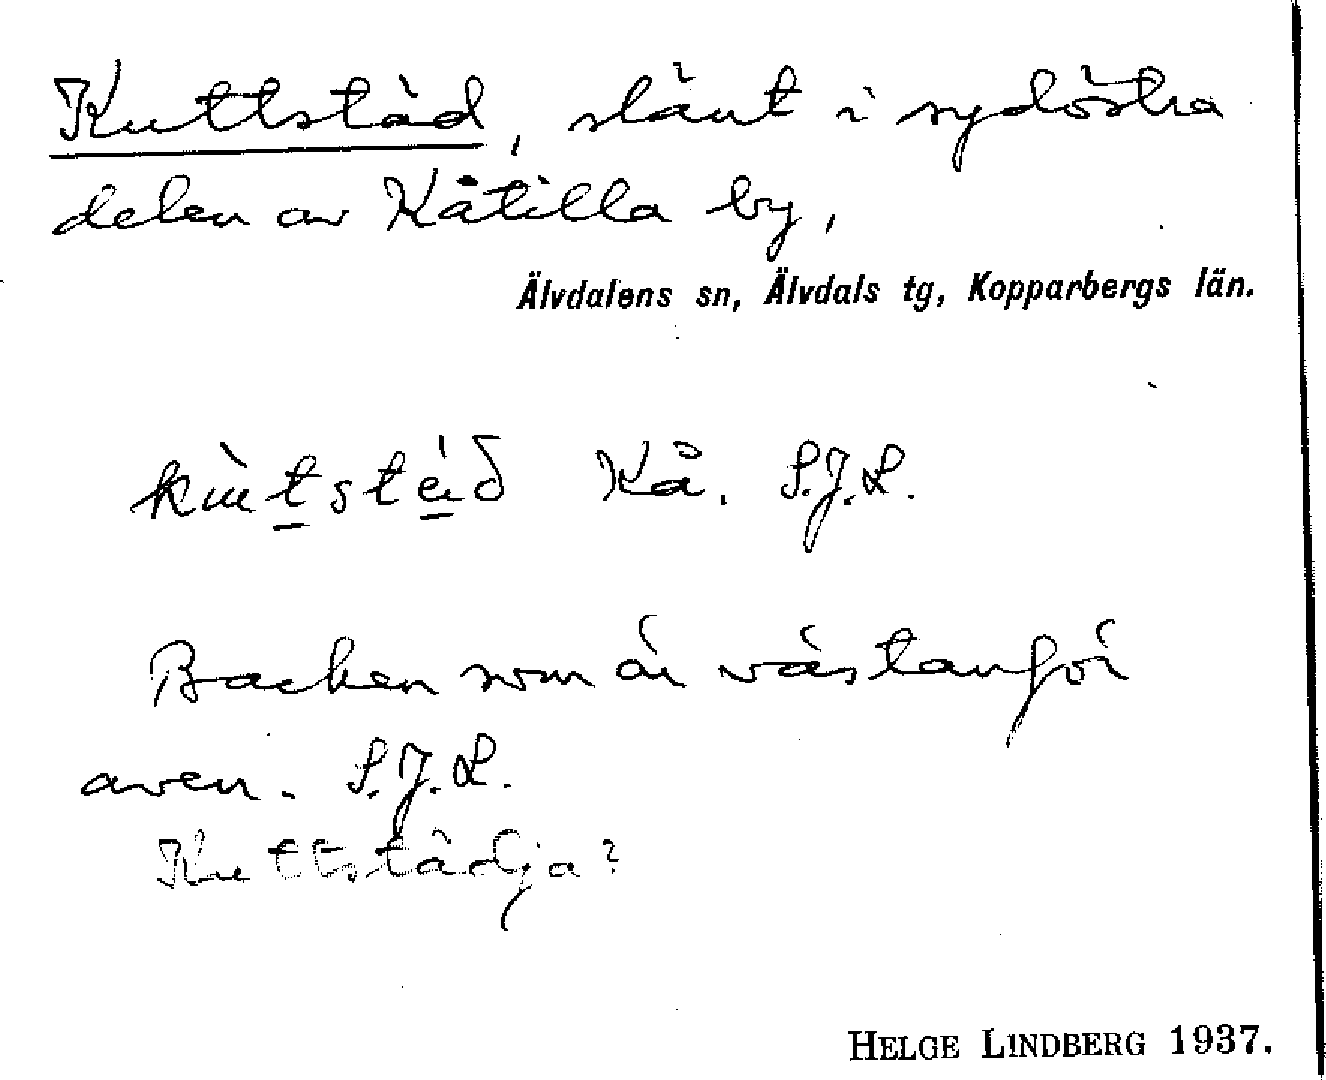 Kuttstäd, slänt i sydöstra
delen av Kåtilla by,
Älvdalens sn, Älvdals tg, Kopparbergs län.
Kå. S.J.L.
Backen som är västanför
aven. S.J.L.
Kuttstädja?
HELGE LINDBERG 1937.